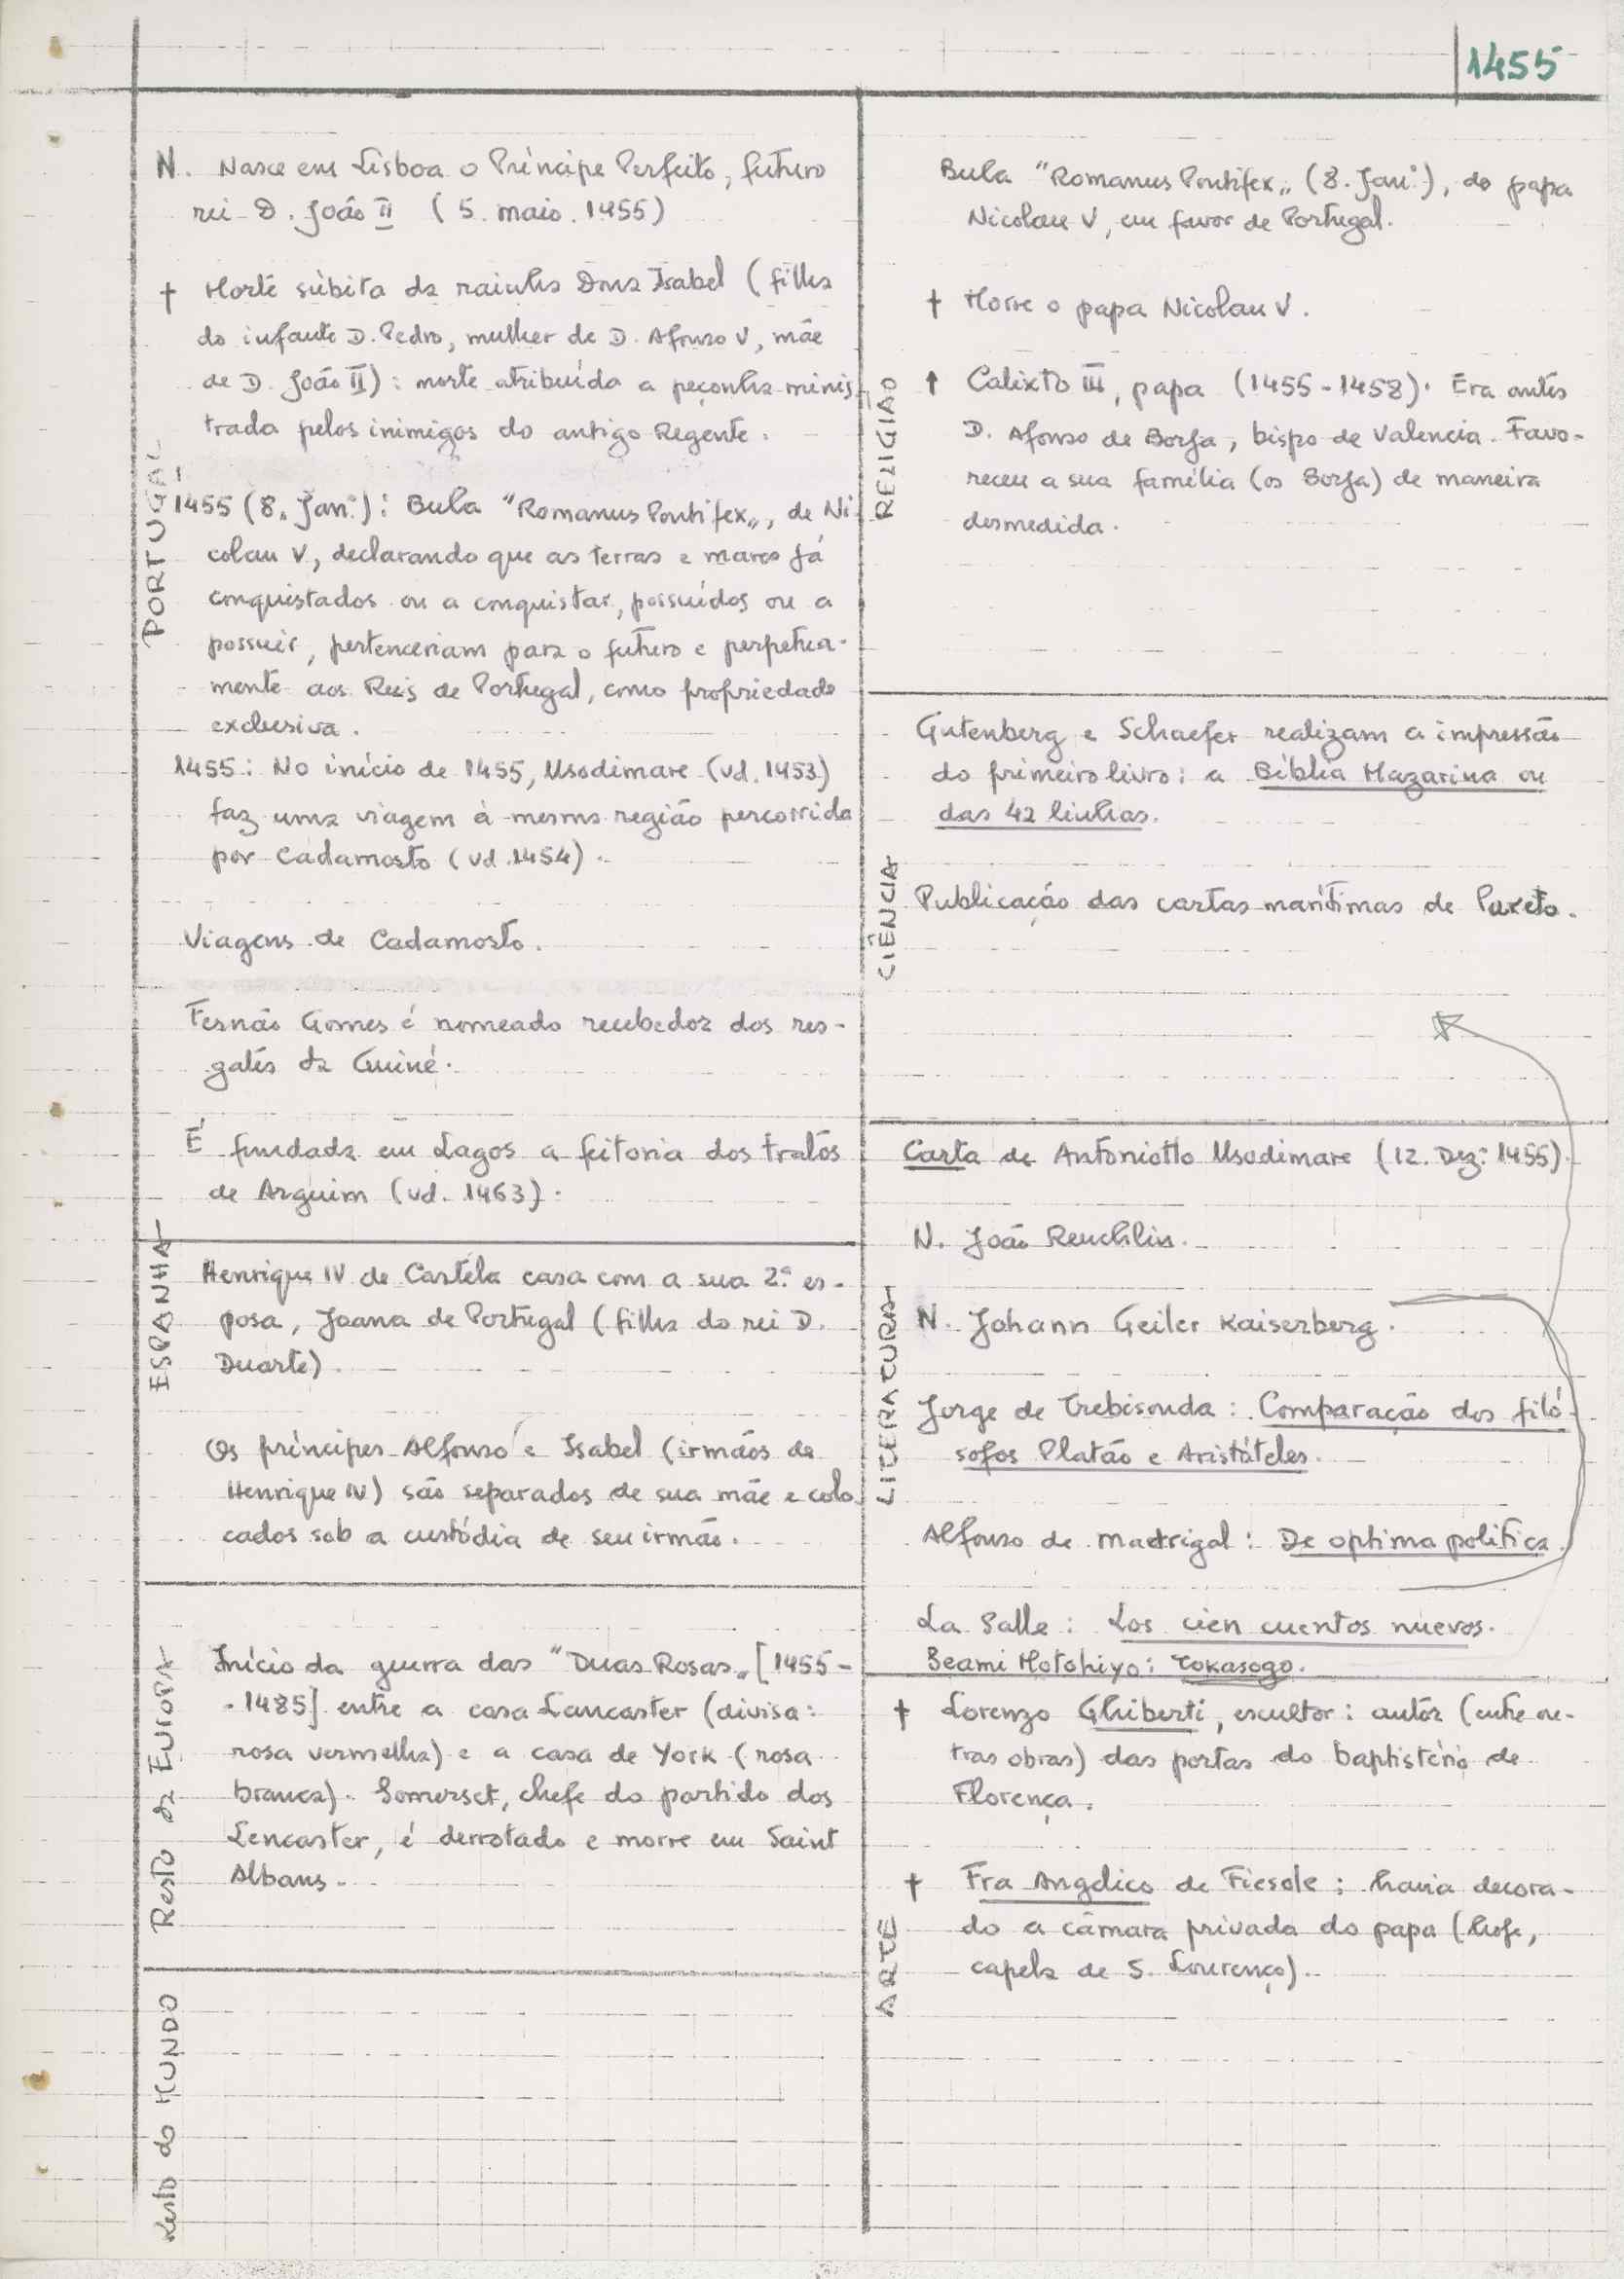 1455
PORTUGAL
N. Nasce em Lisboa o Príncipe Perfeito, futuro
rei D. João II (5. maio. 1455)
† Morte súbita da rainha Dona Isabel (filha
do infante D. Pedro, mulher de D. Afonso V, mãe
de D. João II): morte atribuída a peçonha minis
trada pelos inimigos do antigo Regente.
1455 (8. Jan.º): Bula "Romanus Pontifex„, de Ni
colau V, declarando que as terras e mares já
conquistados ou a conquistar, possuídos ou a
possuir, pertenceriam para o futuro e perpetua-
mente aos Reis de Portugal, como propriedade
exclusiva.
1455: No início de 1455, Usodimare (vd. 1453)
faz uma viagem à mesma região percorrida
por Cadamosto (vd. 1454).
Viagens de Cadamosto.
Fernão Gomes é nomeado recebedor dos res-
gates da Guiné.
É fundada em Lagos a feitoria dos tratos
de Arguim (vd. 1463).
ESPANHA
Henrique IV de Castela casa com a sua 2ª es-
posa, Joana de Portugal (filha do rei D.
Duarte).
Os príncipes Alfonso e Isabel (irmãos de
Henrique IV) são separados de sua mãe e colo
cados sob a custódia de seu irmão.
Resto da EUROPA
Início da guerra das "Duas Rosas„ [1455-
-1485] entre a casa Lancaster (divisa:
rosa vermelha) e a casa de York (rosa
branca). Somerset, chefe do partido dos
Lencaster, é derrotado e morre em Saint
Albans.
Resto do MUNDO
RELIGIÃO
Bula "Romanus Pontifex„ (8. Jan.º), do papa
Nicolau V, em favor de Portugal.
† Morre o papa Nicolau V.
† Calixto III, papa (1455-1458). Era antes
D. Afonso de Borja, bispo de Valencia. Favo-
receu a sua família (os Borja) de maneira
desmedida.
CIÊNCIA
Gutenberg e Schaefer realizam a impressão
do primeiro livro: a Bíblia Mazarina ou
das 42 linhas.
Publicação das cartas marítimas de Pareto.
LITERATURA
Carta de Antoniotto Usodimare (12. Dez: 1455).
N. João Reuchlin.
N. Johann Geiler Kaiserberg.
Jorge de Trebisonda: Comparação dos filó-
sofos Platão e Aristóteles.
Alfonso de Madrigal: De optima politica.
La Salle: Los cien cuentos nuevos.
Seami Motohiyo: Tokasogo.
ARTE
† Lorenzo Ghiberti, escultor: autor (entre ou-
tras obras) das portas do baptistério de
Florença.
† Fra Angelico de Fiesole: havia decora-
do a câmara privada do papa (hoje,
capela de S. Lourenço).